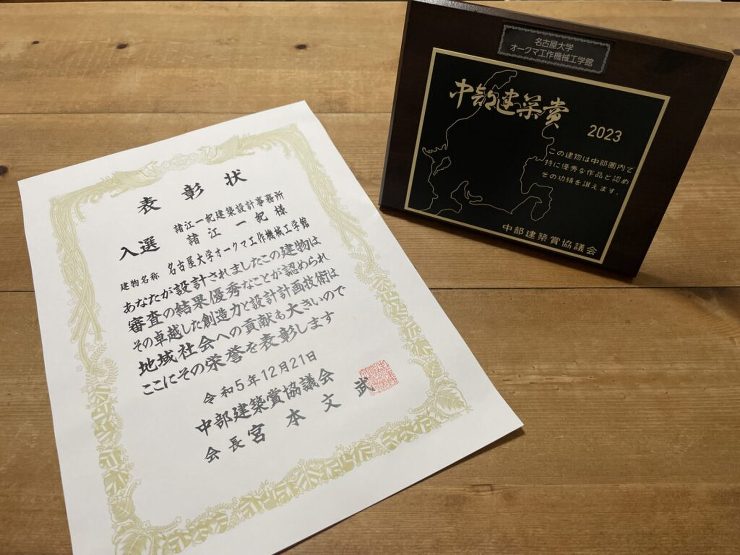 表彰状
諸江一紀建築設計事務所
入選 諸江一紀様
建物名称 名古屋大学オークマ工作機械工学館
あなたが設計されましたこの建物は
審査の結果優秀なことが認められ
その卓越した創造力と設計計画技術は
地域社会への貢献も大きいので
ここにその栄誉を表彰します
令和5年12月21日
中部建築賞協議会
会長 宮本文武
名古屋大学
オークマ工作機械工学館
中部建築賞
2023
この建物は中部圏内で
特に優秀な作品と認め
その功績を讃えます.
中部建築賞協議会